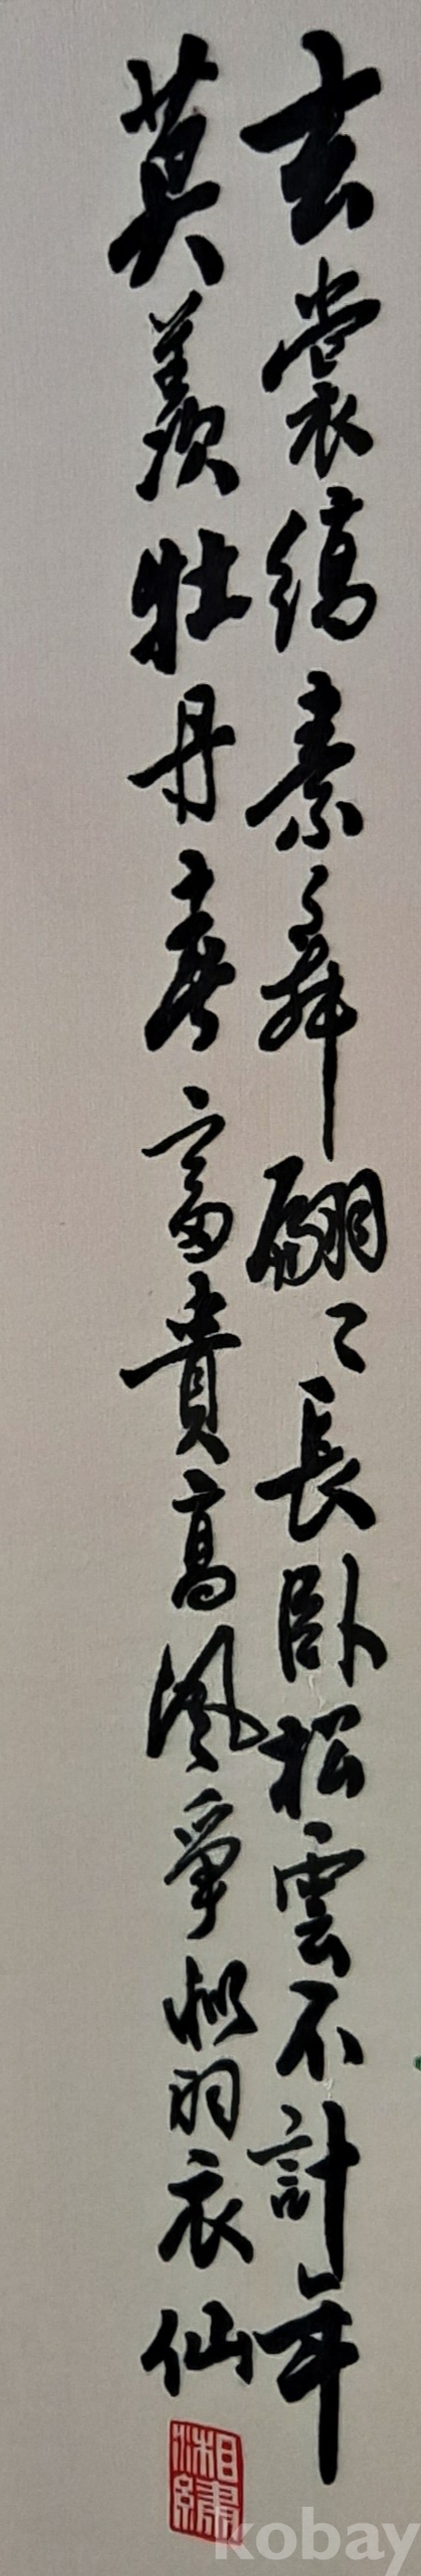 玄裳縞素舞翩〻長臥松雲不計年
莫羨牡丹春富貴高風爭似羽衣仙
湘繡
kobay